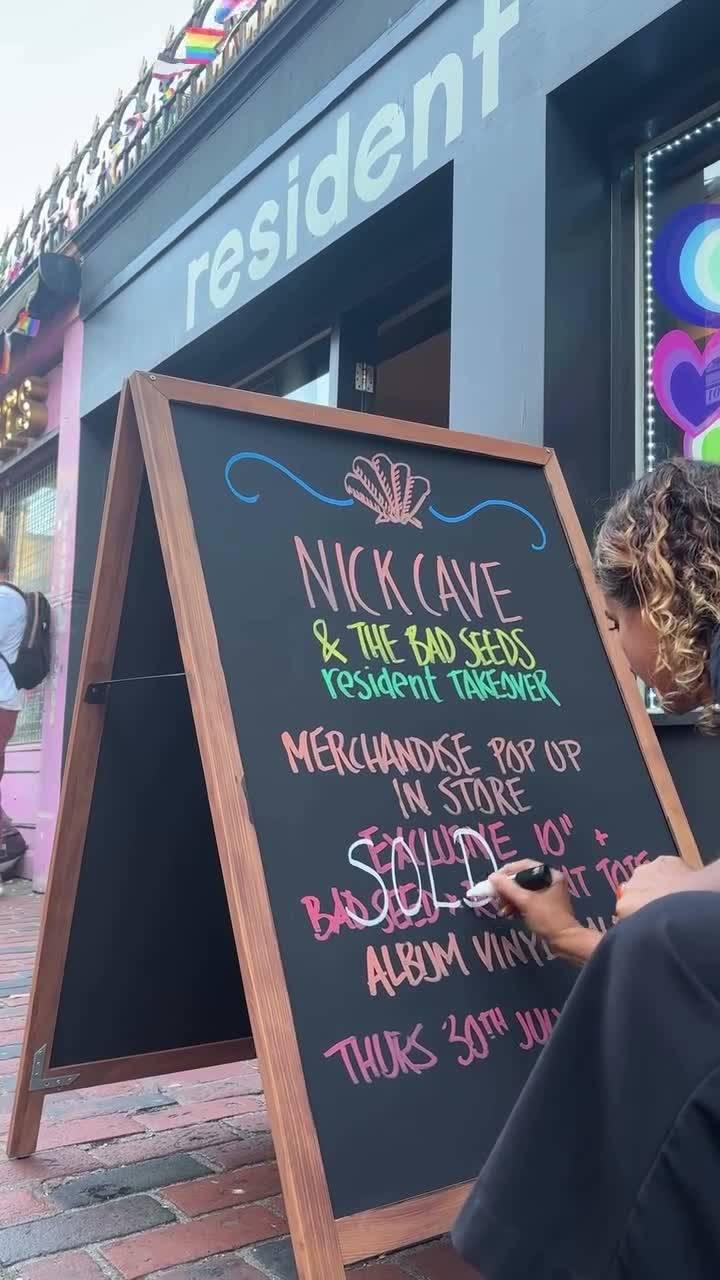 resident
NICK CAVE
& THE BAD SEEDS
resident TAKEOVER
MERCHANDISE POP UP
IN STORE
EXCLUSIVE 10" +
SOLD
BAD SEED TOTE
ALBUM VINYL
THURS 30TH JULY